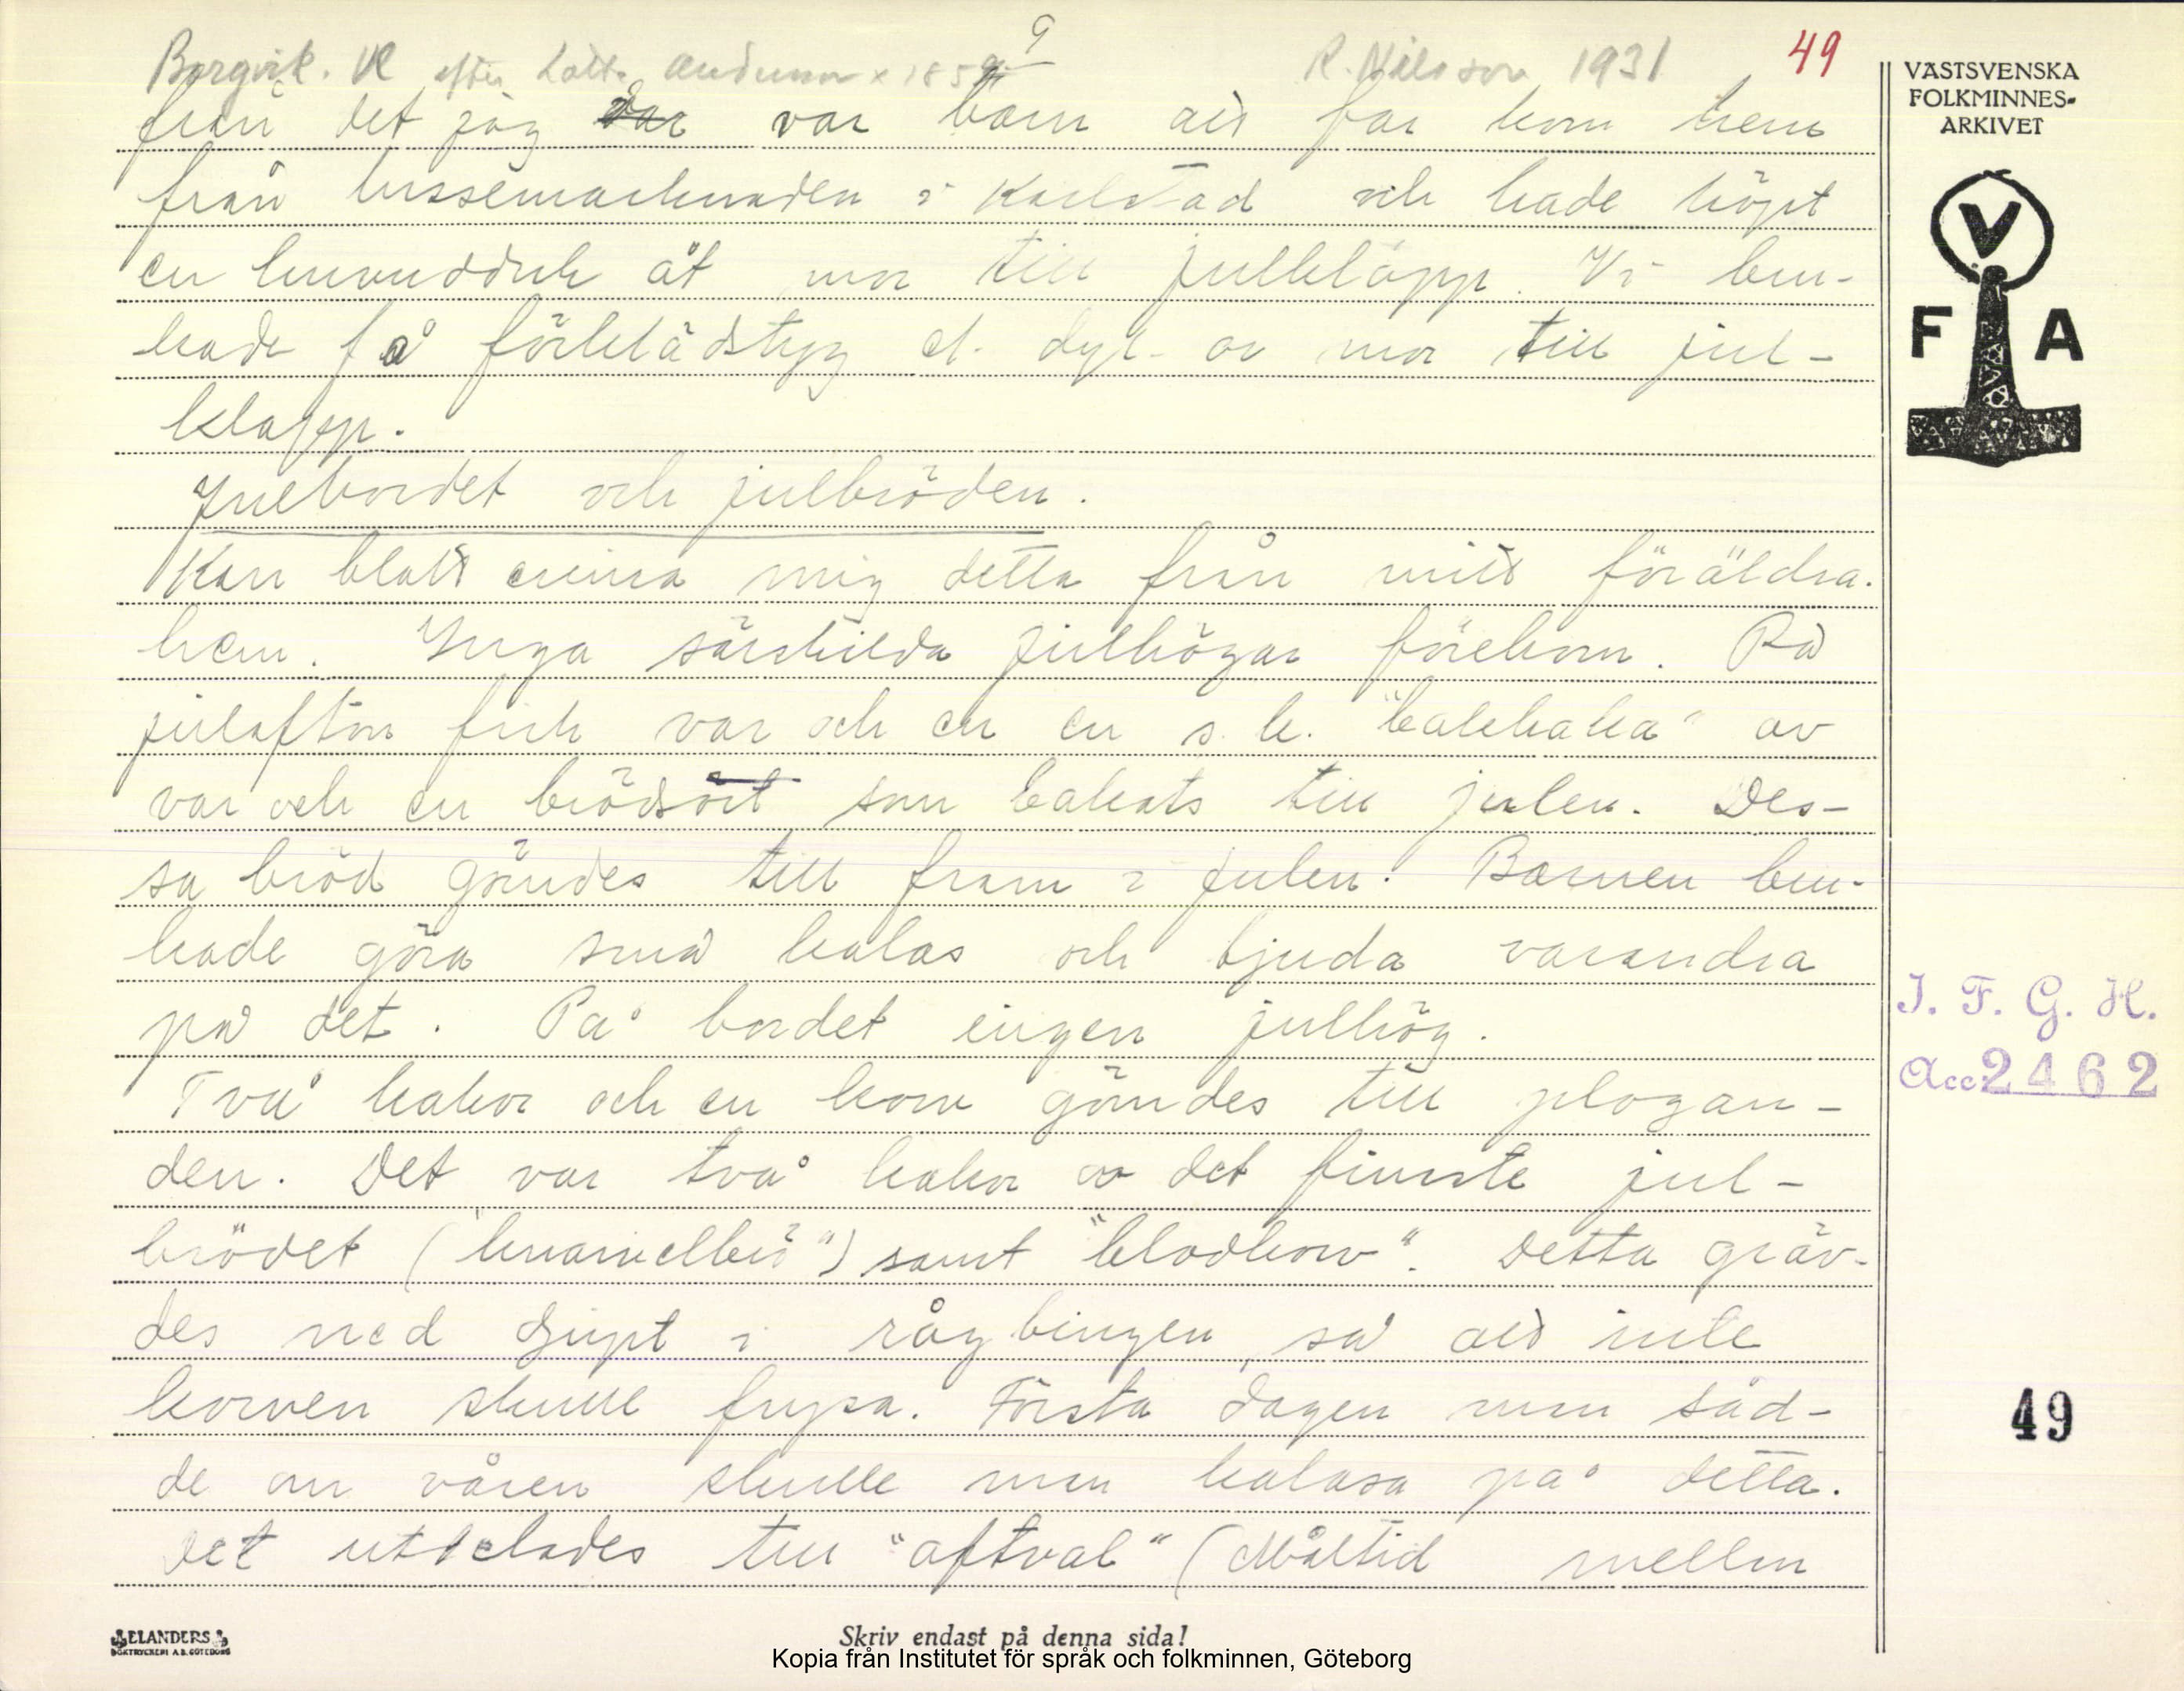 9
Borgvik. Vl efter Lotta Andersson × 1859 R. Nilsson 1931 49
från det jag var barn att far kom hem
från lussemarknaden i Karlstad och hade köpt
en huvudduk åt mor till julklapp. Vi bru-
kade få förklädstyg el. dyl. av mor till jul-
klapp.
Julbordet och julbröden.
Kan blott erinra mig detta från mitt föräldra-
hem. Inga särskilda julhögar förekom. På
julafton fick var och en en s. k. "bakkaka" av
var och en brödsort som bakats till julen. Des-
sa bröd gömdes till fram i julen. Barnen bru-
kade göra små kalas och bjuda varandra
på det. På bordet ingen julhög.
Två kakor och en korv gömdes till plogan-
den. Det var två kakor av det finaste jul-
brödet ( ) samt "blodkorv". Detta gräv-
des ned djupt i rågbingen, så att inte
korven skulle frysa. Första dagen man såd-
de om våren skulle man kalasa på detta.
Det utdelades till "aftval" (Måltid mellan
VÄSTSVENSKA
FOLKMINNES-
ARKIVET
V
F A
I. F. G. H.
Acc: 2462
49
ELANDERS
BOKTRYCKERI A.B. GÖTEBORG
Skriv endast på denna sida!
Kopia från Institutet för språk och folkminnen, Göteborg